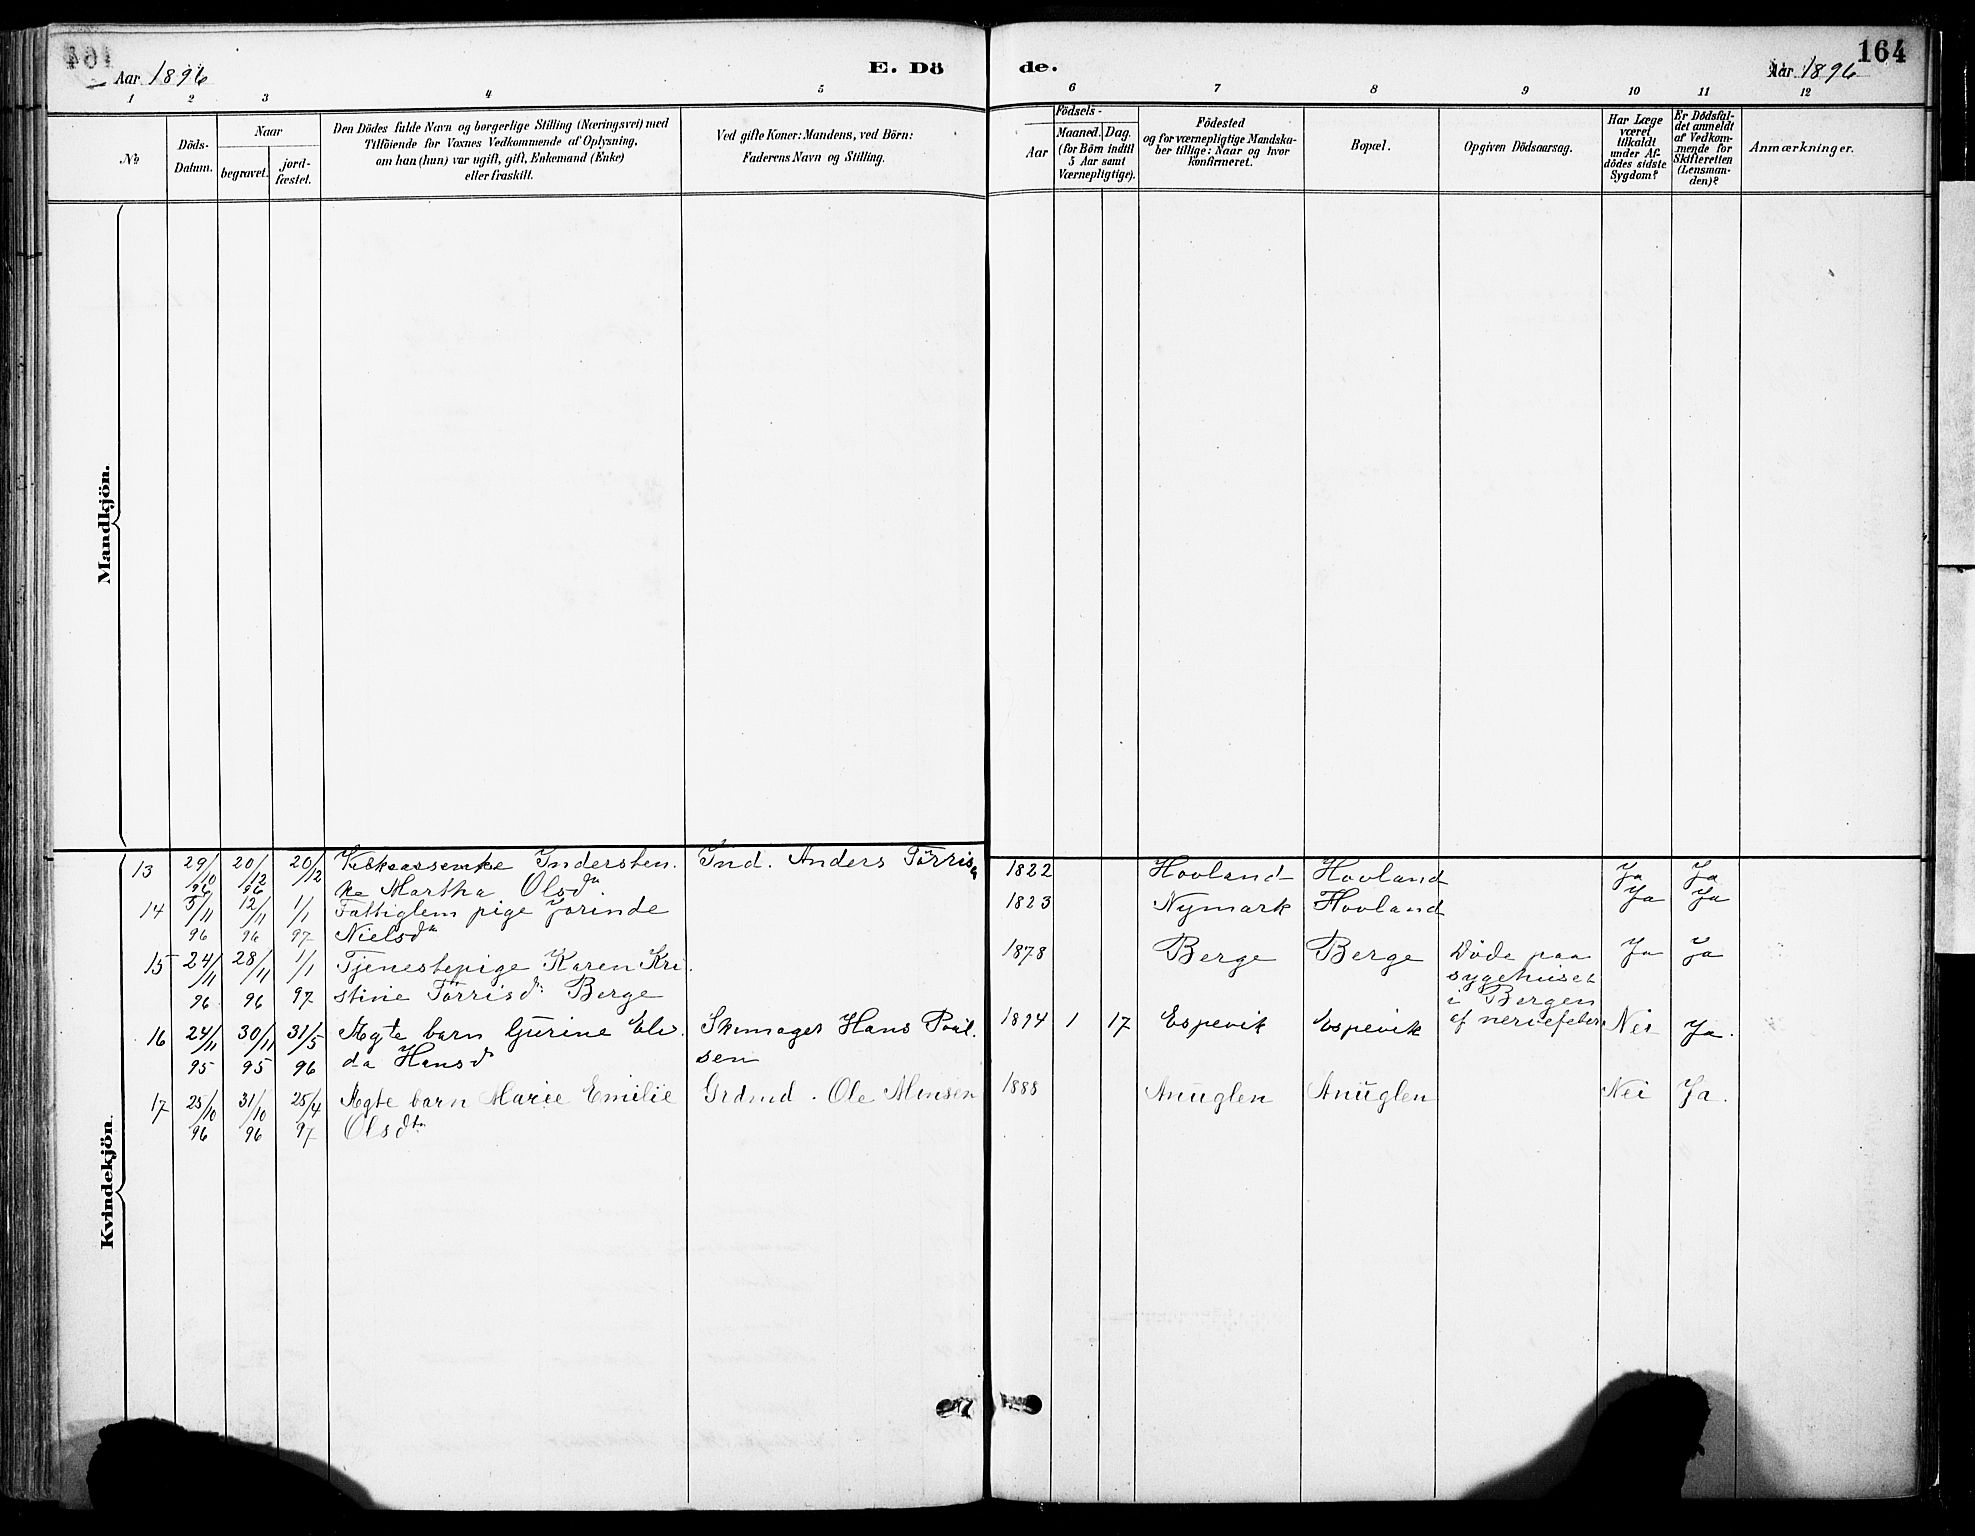 164
Aar 1896
E. Dö
1 2 3 4 5
No
Döds-
Datum.
Naar
begravet.
jord-
fæstet.
Den Dödes fulde Navn og borgerlige Stilling (Næringsvei) med
Tilföiende for Voxnes Vedkommende af Oplysning,
om han (hun) var ugift, gift, Enkemand (Enke)
eller fraskilt.
Ved gifte Koner: Mandens, ved Börn:
Faderens Navn og Stilling.
Mandkjön.
Kvindekjön.
13 29/10 96 20/12 96 20/12 Indersten. Ind. Anders Törris
ke Martha Olsdtr.
14 5/11 96 12/11 96 1/1 97 Fattiglem pige Jorinde
Nielsdtr
15 24/11 96 28/11 96 1/1 97 Tjenestepige Karen Kri
stine Törrisd: Berge
16 24/11 95 30/11 95 31/5 96 Ægte barn Gurine Eli Skomager Hans Poul
da Hansd sen
17 25/10 96 31/10 96 25/4 97 Ægte barn Marie Emilie Grdmd. Ole Monsen
Olsdtr
de.
164
Aar 1896
6 7 8 9 10 11 12
Födsels-
Aar
Maaned. Dag.
(for Börn indtil
5 Aar samt
Værnepligtige).
Födested
og for værnepligtige Mandska-
ber tillige: Naar og hvor
konfirmeret.
Bopæl.
Opgiven Dödsaarsag.
Har Læge
været
tilkaldt
under Af-
dödes sidste
Sygdom?
Er Dödsfal-
det anmeldt
af Vedkom-
mende for
Skifteretten
(Lensman-
den)?
Anmærkninger.
1822 Hovland Hovland Ja Ja
1823 Nymark Hovland Ja Ja
1878 Berge Berge Döde paa Ja Ja
sygehuset
i Bergen
af nervefeber
1894 1 17 Espevik Espevik Nei Ja.
1888 Anuglen Anuglen Nei Ja.